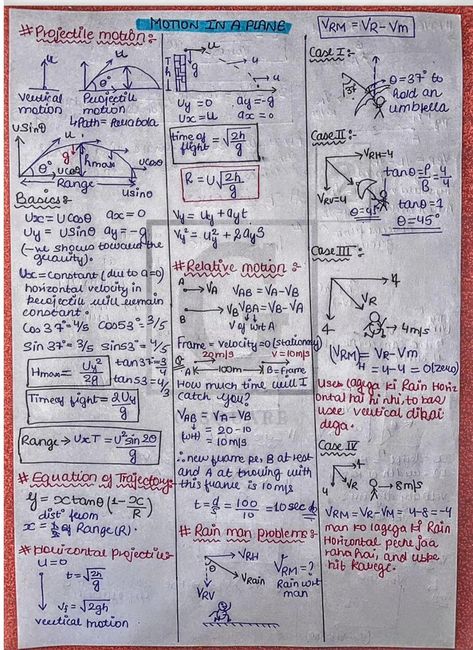 MOTION IN A PLANE
#Projectile motion:-
u
u
Vertical motion
Projectile motion
↳Path = Parabola
usinθ
u
g
hmax
ucosθ
θ°
ucosθ
Range
usinθ
Basics:-
Ux = Ucosθ ax = 0
Uy = Usinθ ay = -g
(-ve shows toward the
gravity).
Ux = constant (due to a=0)
horizontal velocity in
projectile will remain
constant.
Cos 37° = 4/5 Cos 53° = 3/5
Sin 37° = 3/5 Sin 53° = 4/5
Hmax = Uy²/2g
tan 37 = 3/4
tan 53 = 4/3
Time of flight = 2Uy/g
Range → Ux × T = U² sin 2θ/g
#Equation of Trajectory
y = x tanθ (1 - x/R)
distⁿ from
x = of Range (R).
#Horizontal projectile:-
u = 0
t = √2h/g
vf = √2gh
vertical motion
u
g
u
h
Uy = 0 ay = -g
Ux = u ax = 0
time of flight = √2h/g
R = U√2h/g
Vy = Uy + ayt
Vy² = Uy² + 2ays
#Relative motion:-
A → VA VAB = VA - VB
B → VB VBA = VB - VA
V of wrt A
Frame = Velocity = 0 (stationary)
20m/s V = 10m/s
A 100m B = Frame
How much time will I
catch you?
VAB = VA - VB
(wrt) = 20 - 10
= 10 m/s
∴ new frame pe, B at rest
and A at moving with
this frame is 10 m/s
t = d/s = 100/10 = 10 sec
#Rain man problems:-
VRH
θ
VRain
VRV
VRM = ?
Rain wrt
man
VRM = VR - Vm
Case I:-
37°
θ = 37° to
hold an
umbrella
Case II:-
VRH = 4
VRV = 4
θ = 45°
tanθ = P/B = 4/4
tanθ = 1
θ = 45°
Case III:-
4
VR
4
4 m/s
(VRM)H = VR - Vm
= 4 - 4 = 0 (zero)
Usee lagega ki Rain Horiz-
ontal hai hi nhi, to bas
usee vertical dikhai
dega.
Case IV
4
VR
4
→ 8 m/s
VRM = VR - Vm = 4 - 8 = -4
man ko lagega ki Rain
Horizontal peche jaa
raha hai, and uske
hit karege.